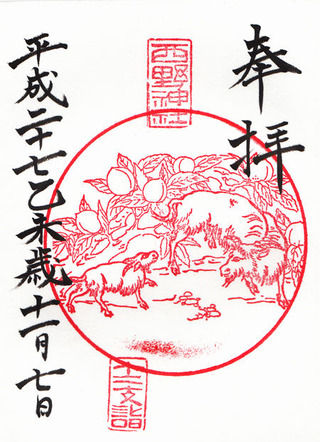 奉拝
西野神社
十二支詣
平成二十七乙未歳十一月七日